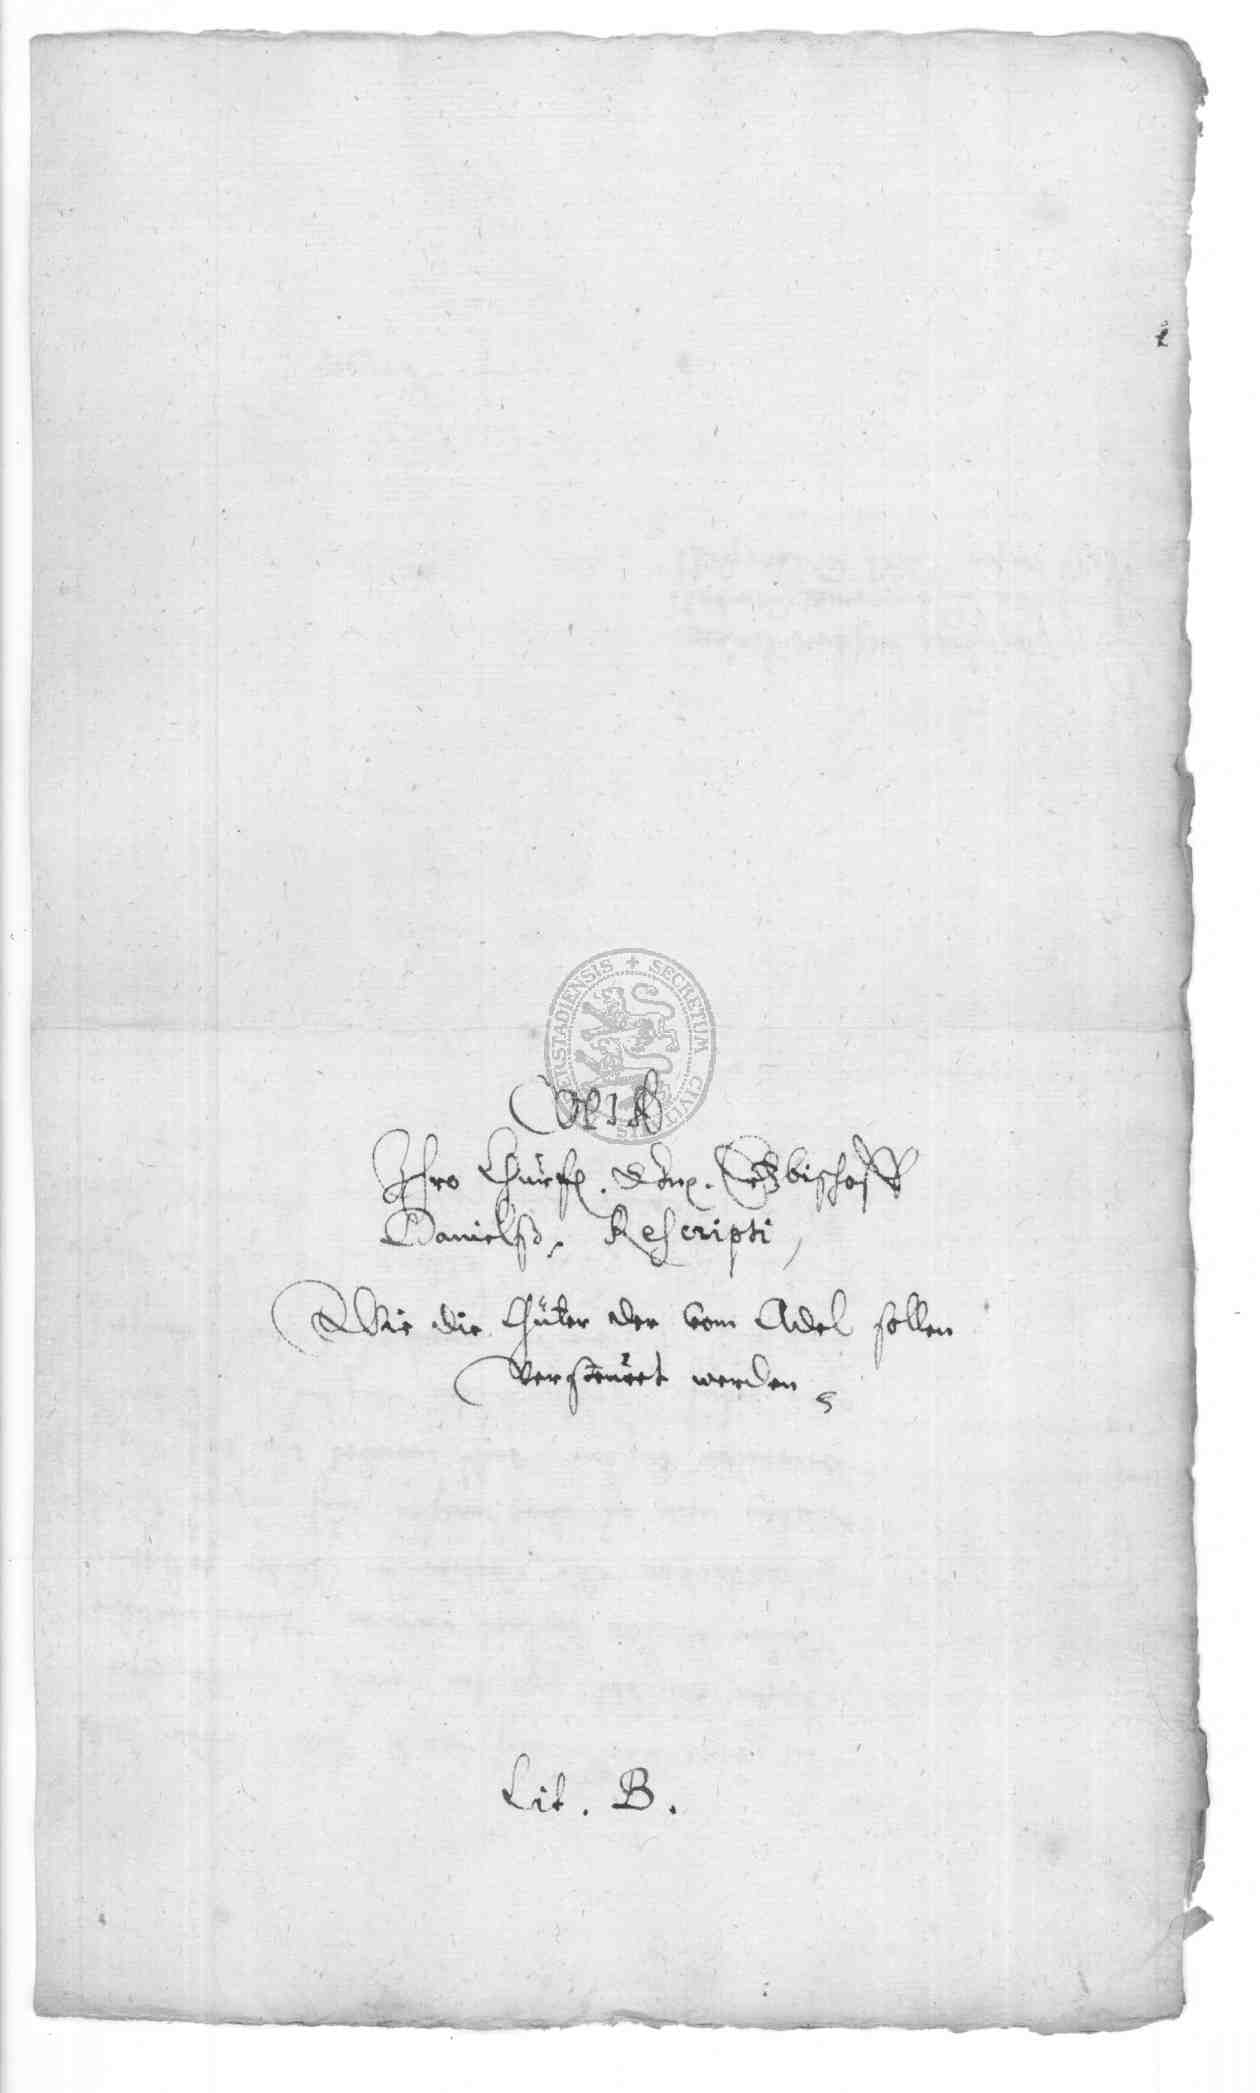 COPIA
Ihro Churfl. Gdn. Ertzbischoff
Danielß, Rescripti,
Wie die Güter der vom Adel sollen
versteuret werden
Lit. B.
SECRETUM CIVI
ERSTADIENSIS